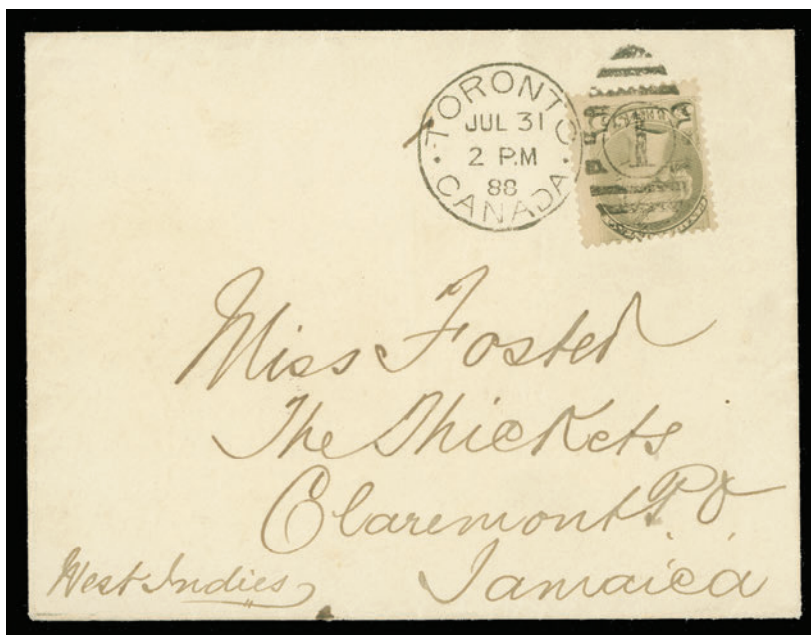 TORONTO
JUL 31
2 P.M
88
CANADA
1
Miss Foster
The Thickets
Claremont P.O
Jamaica
West Indies